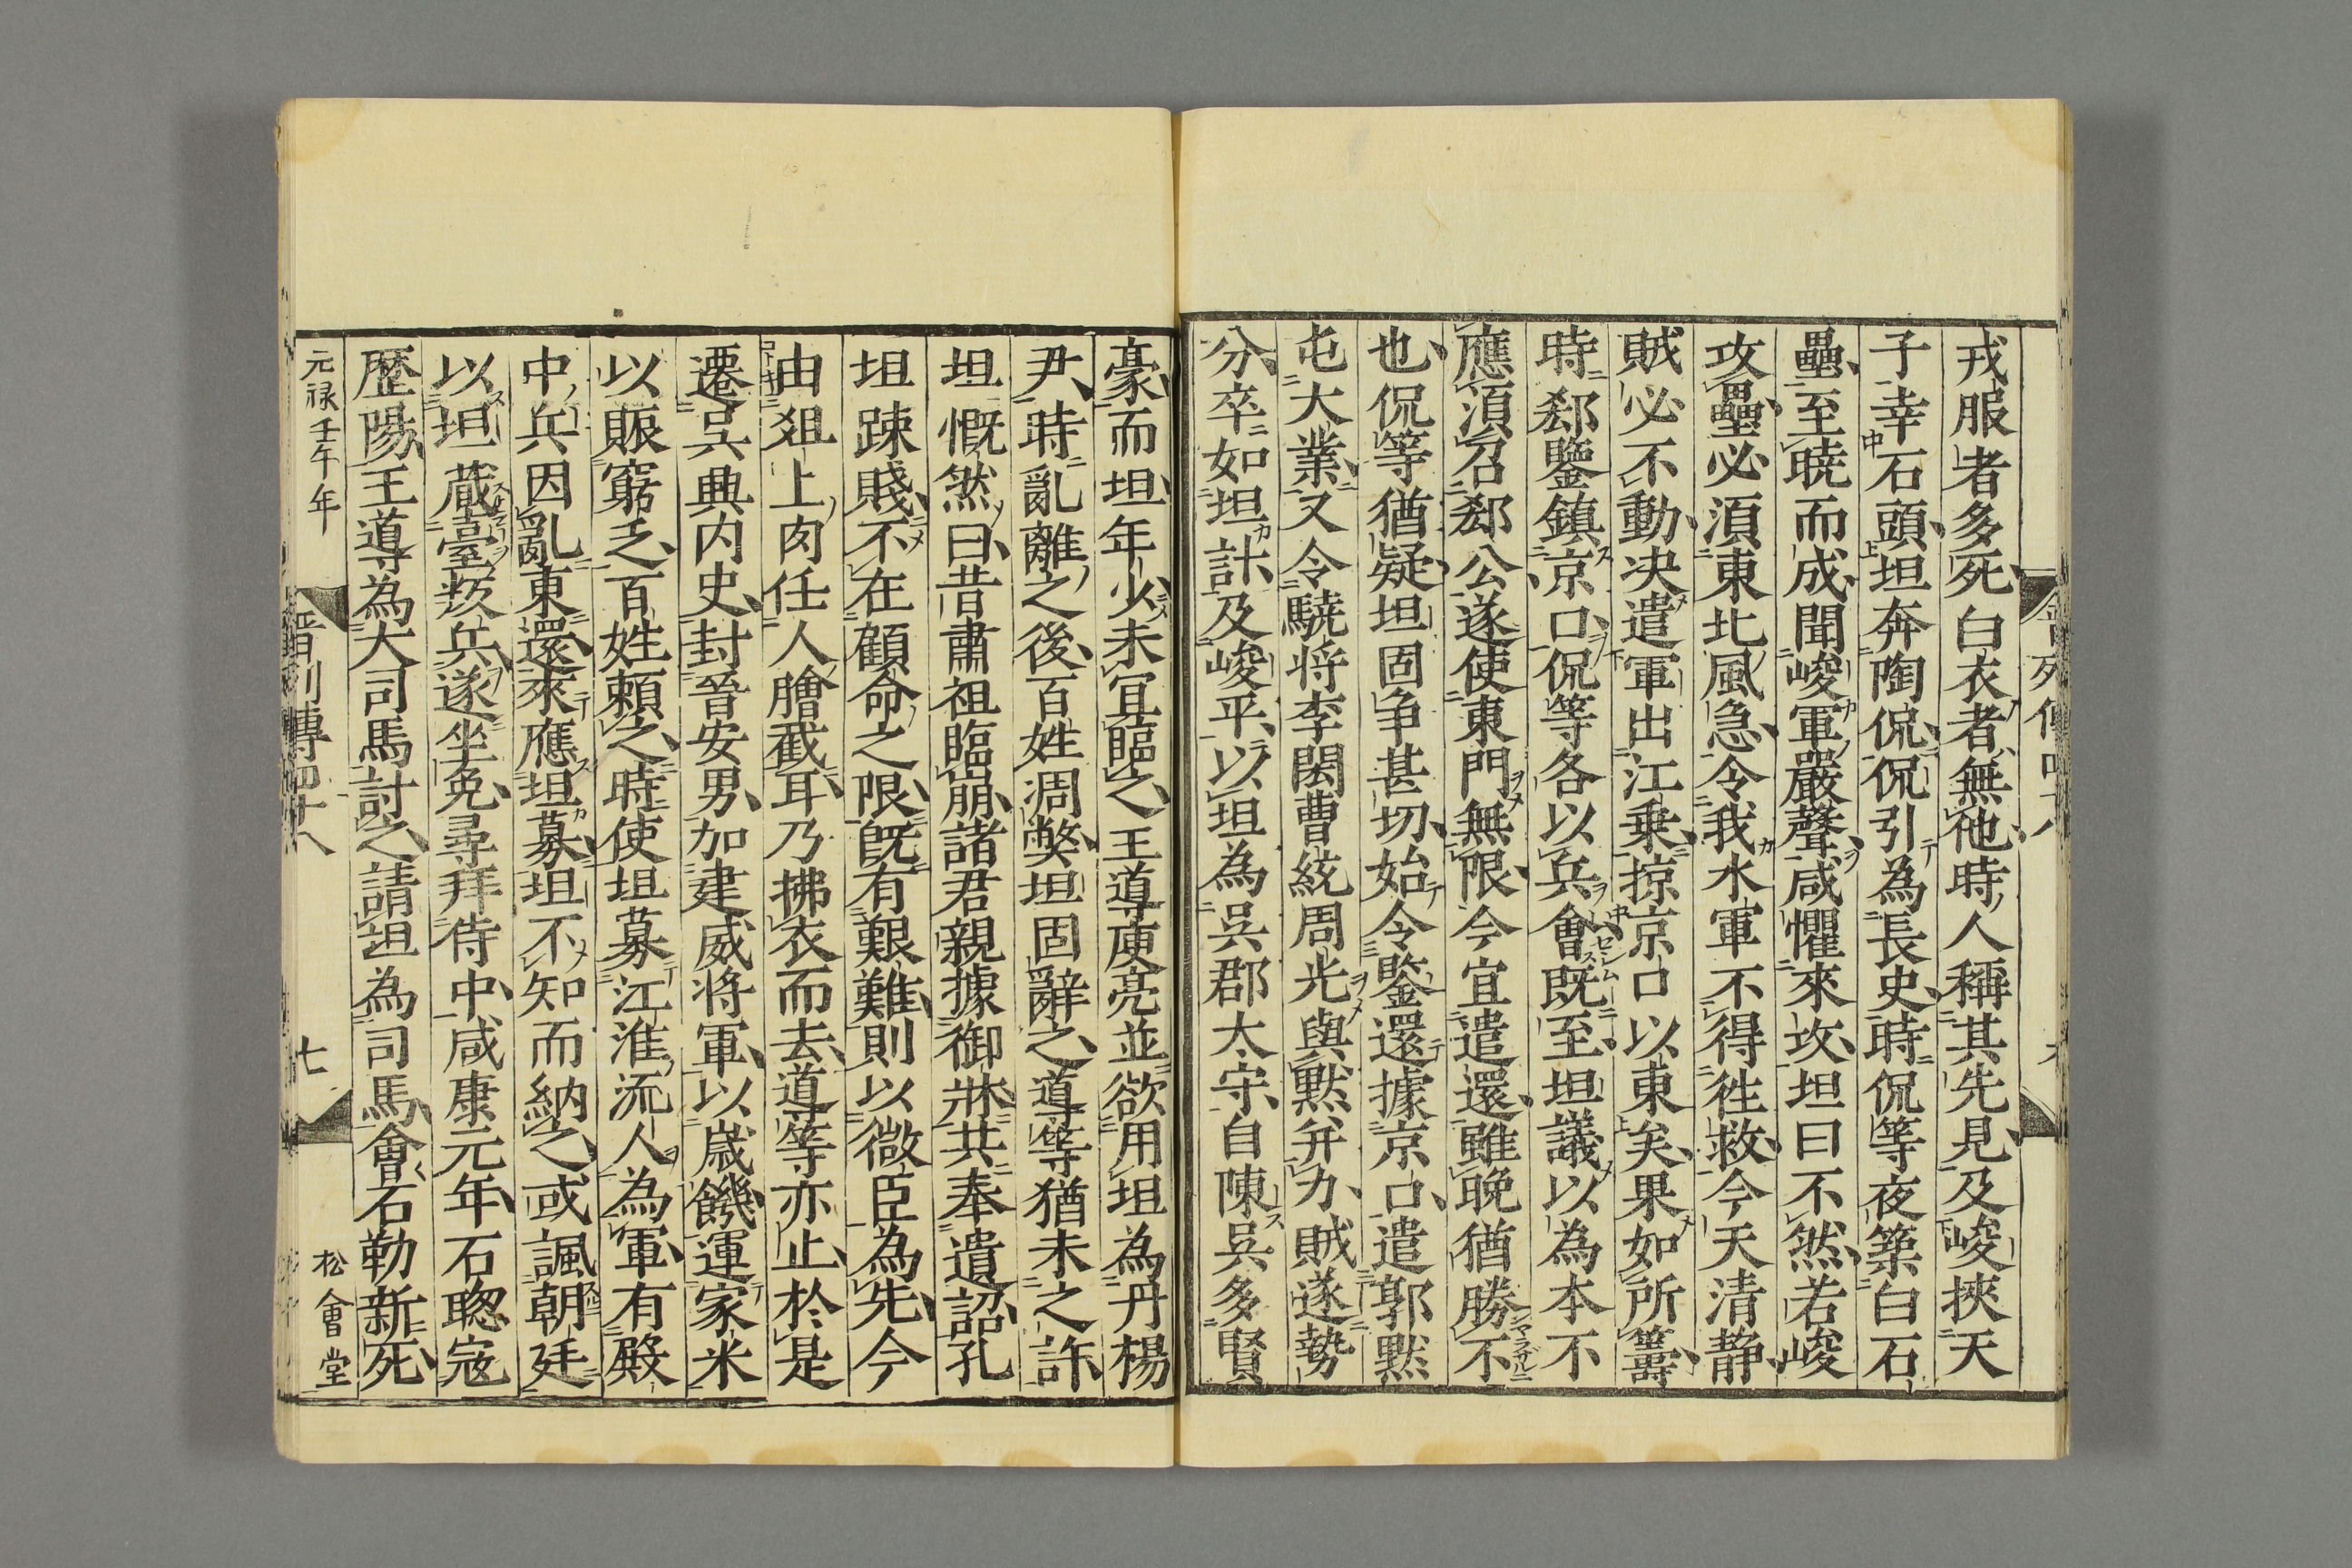 戎服者多死白衣者無他時人稱其先見及峻挾天
子幸石頭坦奔陶侃侃引為長史時侃等夜築白石
壘至曉而成聞峻軍嚴聲咸懼來攻坦曰不然若峻
攻壘必須東北風急令我水軍不得徃救今天清静
賊必不動决遣軍出江乗掠京口以東矣果如所籌
時郄鑒鎮京口侃等各以兵會既至坦議以為本不
應須召郄公遂使東門無限今宜遣還雖晚猶勝不
也侃等猶疑坦固争甚切始令鑒還據京口遣郭黙
屯大業又令驍将李閎曹統周光與黙并力賊遂勢
分卒如坦計及峻平以坦為呉郡太守自陳呉多賢
豪而坦年少未冝臨之王導庾亮並欲用坦為丹楊
尹時亂離之後百姓凋獘坦固辭之導等猶未之許
坦慨然曰昔肅祖臨崩諸君親據御牀共奉遺詔孔
坦踈賤不在顧命之限既有艱難則以微臣為先今
由俎上肉任人膾截耳乃拂衣而去導等亦止於是
遷呉興内史封晉安男加建威将軍以歳饑運家米
以賑窮乏百姓頼之時使坦募江淮流人為軍有殿
中兵因亂東還來應坦募坦不知而納之或諷朝廷
以坦蔵臺叛兵遂坐免尋拜侍中咸康元年石聦寇
歷陽王導為大司馬討之請坦為司馬會石勒新死
元禄壬午年
晉列傳四十八
七
松會堂